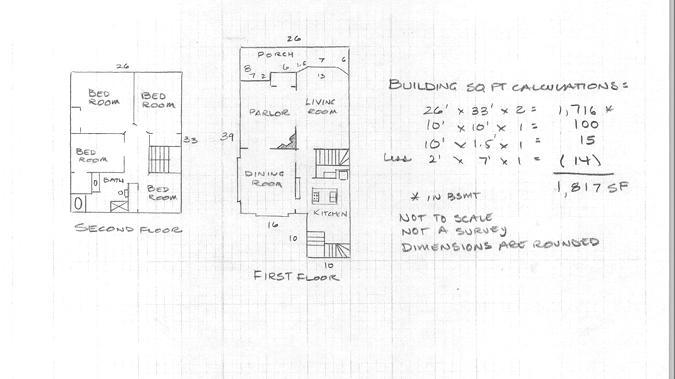 26
BED
ROOM
BED
ROOM
BED
ROOM
BATH
BED
ROOM
33
SECOND FLOOR
26
PORCH
8
7
2
6
1.5
7
13
6
PARLOR
LIVING
ROOM
39
DINING
ROOM
KITCHEN
16
10
10
FIRST FLOOR
BUILDING SQ FT CALCULATIONS:
26' x 33' x 2 = 1,716 *
10' x 10' x 1 = 100
10' x 1.5' x 1 = 15
Less 2' x 7' x 1 = (14)
1,817 SF
* IN BSMT
NOT TO SCALE
NOT A SURVEY
DIMENSIONS ARE ROUNDED